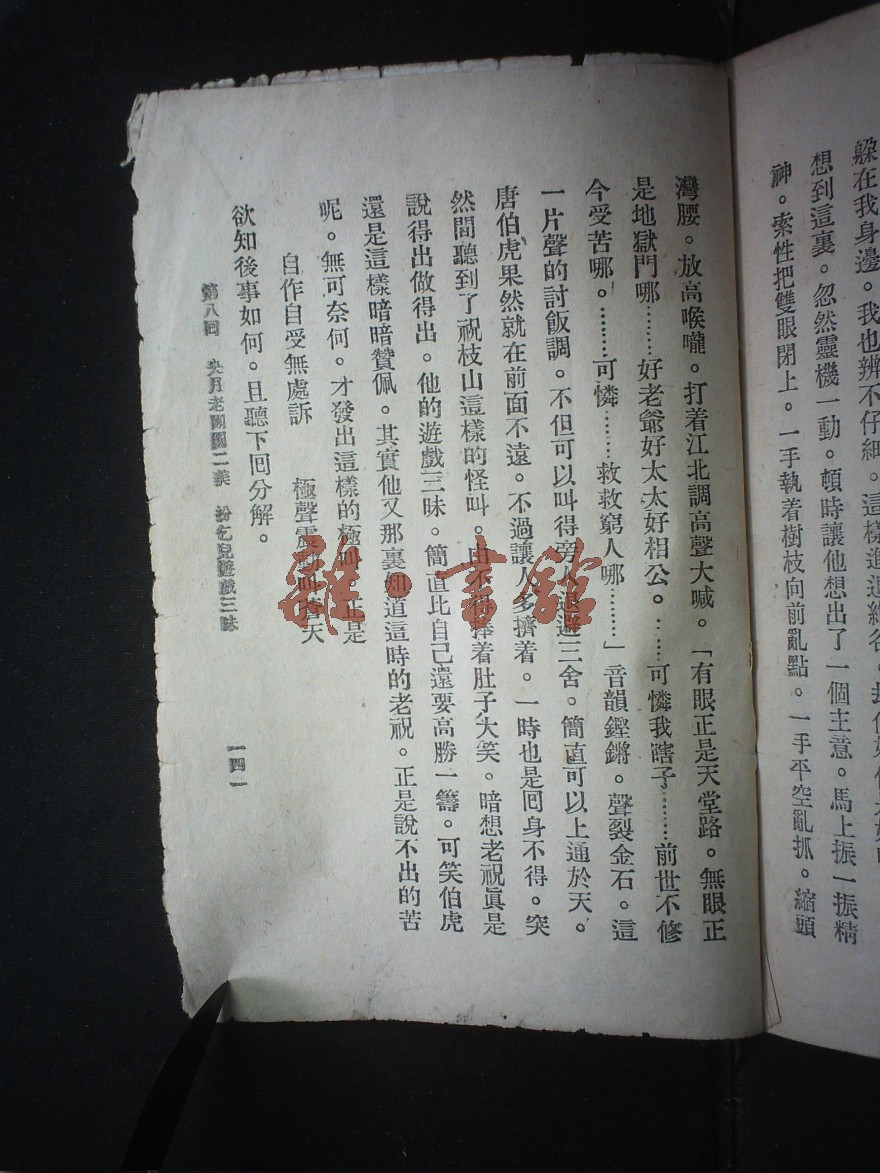 躲在我身邊。我也辨不仔細。這樣進退維谷。
想到這裏。忽然靈機一動。頓時讓他想出了一個主意。馬上振一振精
神。索性把雙眼閉上。一手執着樹枝向前亂點。一手平空亂抓。縮頭
灣腰。放高喉嚨。打着江北調高聲大喊。「有眼正是天堂路。無眼正
是地獄門哪………好老爺好太太好相公。……可憐我瞎子………前世不修
今受苦哪。………可憐………救救窮人哪………」音韻鏗鏘。聲裂金石。這
一片聲的討飯調。不但可以叫得旁人退避三舍。簡直可以上通於天。
唐伯虎果然就在前面不遠。不過讓人多擠着。一時也是回身不得。突
然間聽到了祝枝山這樣的怪叫。由不得捧着肚子大笑。暗想老祝眞是
說得出做得出。他的遊戲三昧。簡直比自己還要高勝一籌。可笑伯虎
還是這樣暗暗贊佩。其實他又那裏知道這時的老祝。正是說不出的苦
呢。無可奈何。才發出這樣的極叫。正是
自作自受無處訴 極聲震動叫蒼天
欲知後事如何。且聽下回分解。
第八回 月老團圓二美 扮乞兒遊戲三昧
一四一
雜·書館